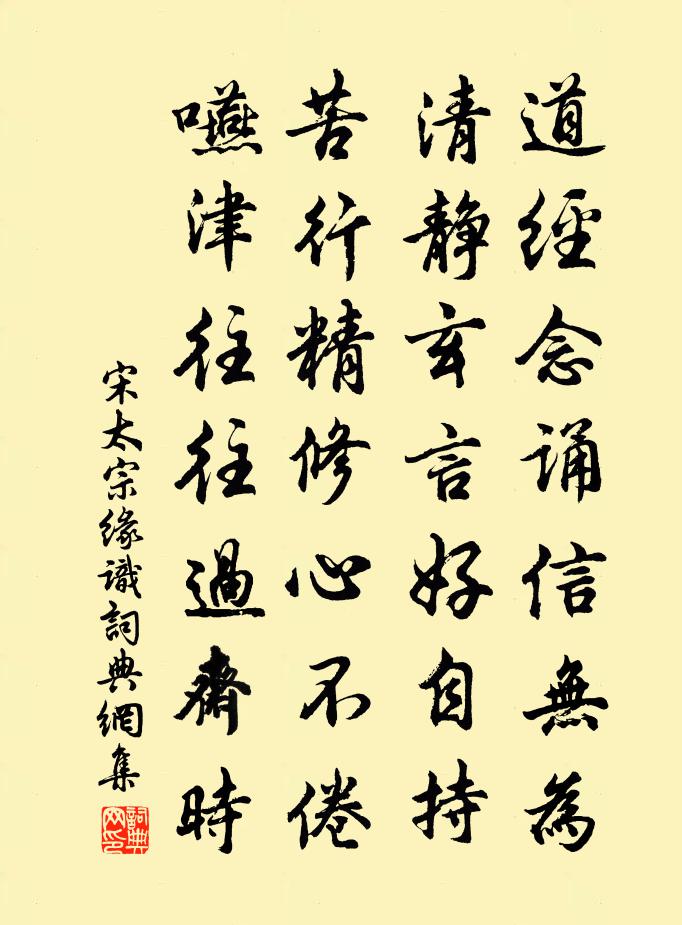 道經念誦信無為
清靜玄言好自持
苦行精修心不倦
嚥津往往過齋時
宋太宗緣識詞典網集
詞典網印